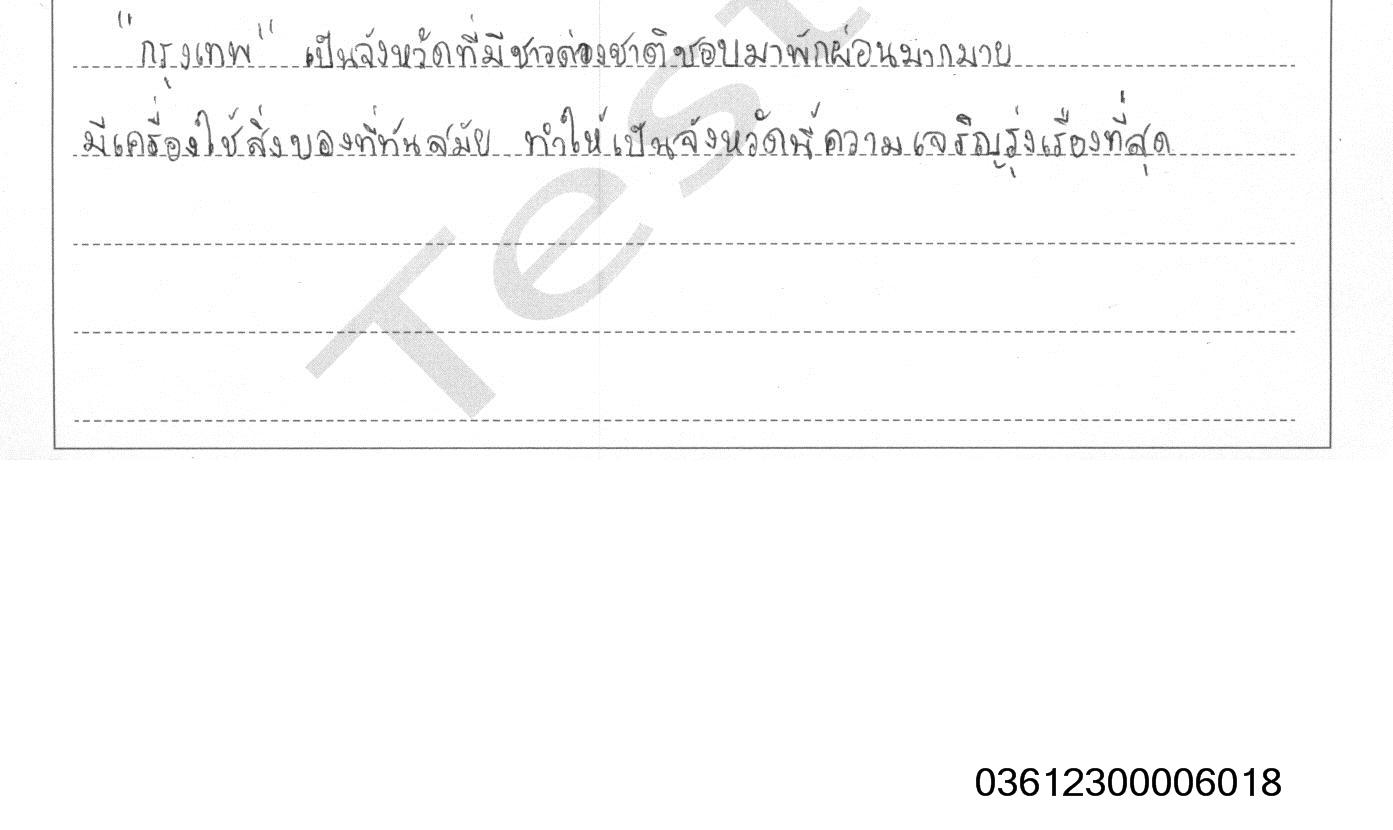 "กรุงเทพ" เป็นจังหวัดที่มีชาวต่องชาติชอบมาพักผ่อนมากมาย
มีเครื่องใช้สิ่งของที่ทันสมัย ทำให้เป็นจังหวัดนี้ความเจริญรุ่งเรืองที่สุด
Test
03612300006018